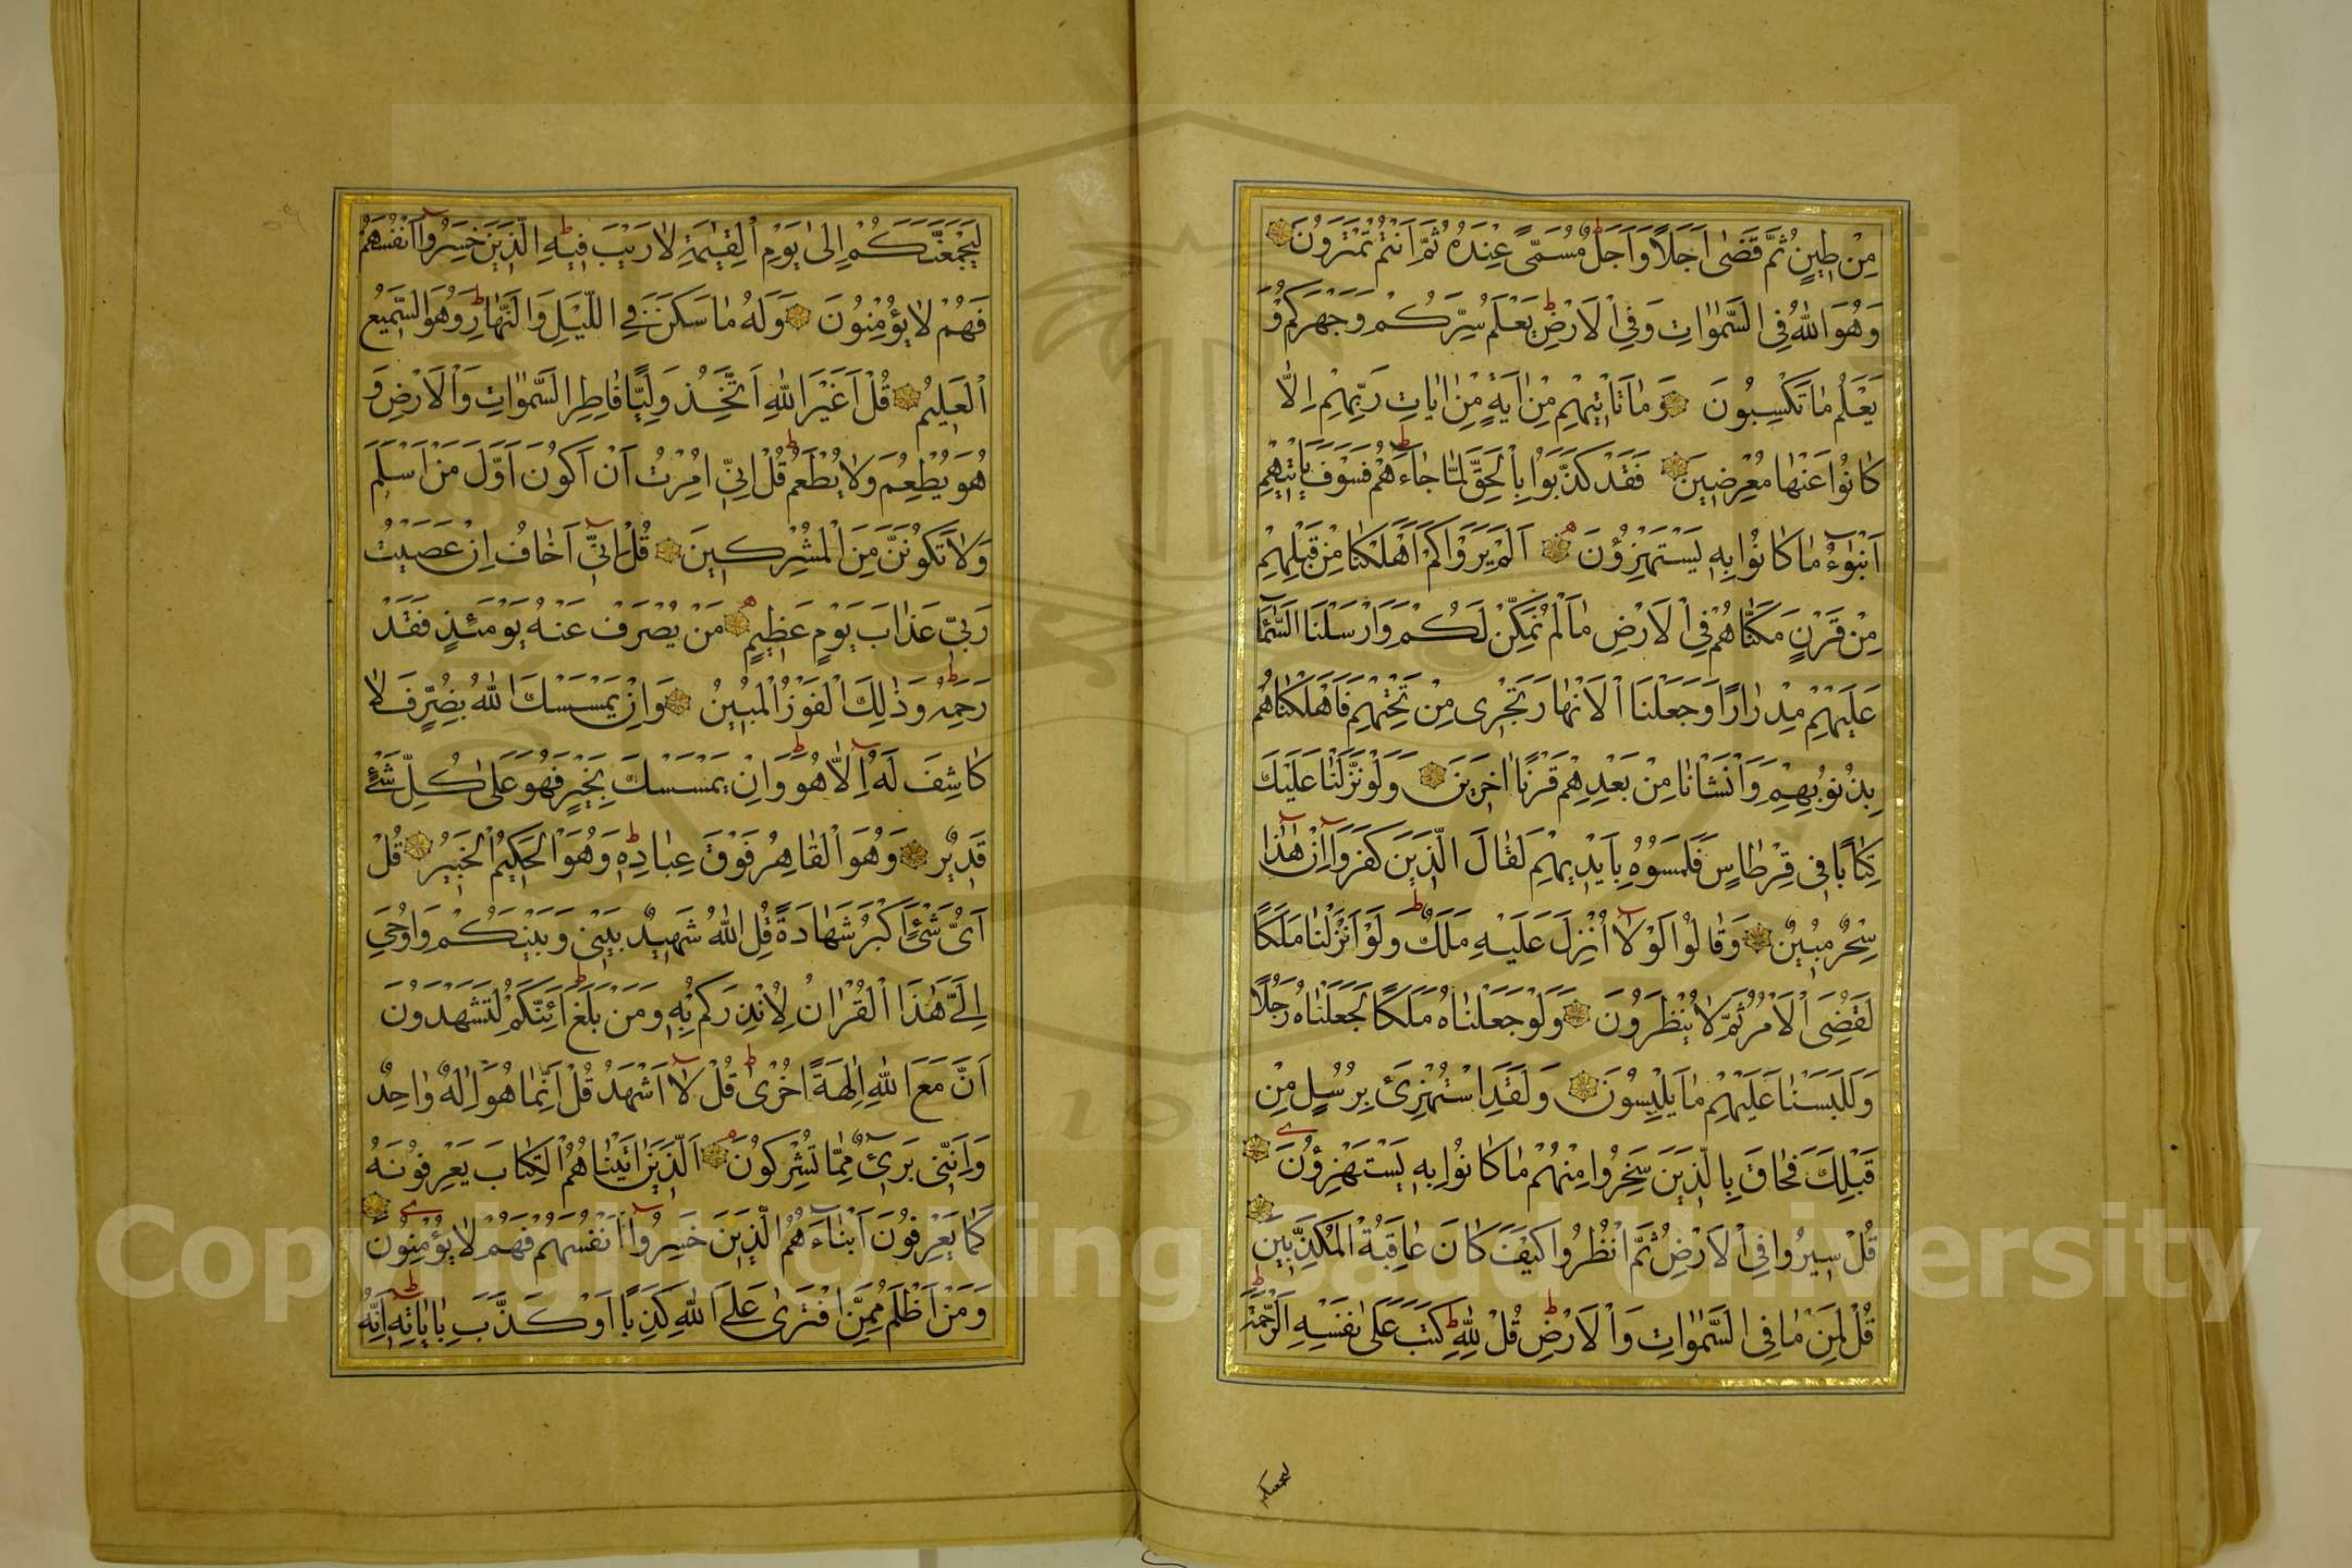 مِنْ طِينٍ ثُمَّ قَضٰى اَجَلًا وَاَجَلٌ مُسَمًّى عِنْدَهُ ثُمَّ اَنْتُمْ تَمْتَرُونَ
وَهُوَ اللّٰهُ فِى السَّمٰوَاتِ وَفِى الْاَرْضِ يَعْلَمُ سِرَّكُمْ وَجَهْرَكُمْ وَ
يَعْلَمُ مَا تَكْسِبُونَ وَمَا تَاْتِيهِمْ مِنْ اٰيَةٍ مِنْ اٰيَاتِ رَبِّهِمْ اِلَّا
كَانُوا عَنْهَا مُعْرِضِينَ فَقَدْ كَذَّبُوا بِالْحَقِّ لَمَّا جَاءَهُمْ فَسَوْفَ يَاْتِيهِمْ
اَنْبٰؤُا مَا كَانُوا بِهِ يَسْتَهْزِؤُنَ اَلَمْ يَرَوْا كَمْ اَهْلَكْنَا مِنْ قَبْلِهِمْ
مِنْ قَرْنٍ مَكَّنَّاهُمْ فِى الْاَرْضِ مَا لَمْ نُمَكِّنْ لَكُمْ وَاَرْسَلْنَا السَّمَآءَ
عَلَيْهِمْ مِدْرَارًا وَجَعَلْنَا الْاَنْهَارَ تَجْرِى مِنْ تَحْتِهِمْ فَاَهْلَكْنَاهُمْ
بِذُنُوبِهِمْ وَاَنْشَاْنَا مِنْ بَعْدِهِمْ قَرْنًا اٰخَرِينَ وَلَوْ نَزَّلْنَا عَلَيْكَ
كِتَابًا فِى قِرْطَاسٍ فَلَمَسُوهُ بِاَيْدِيهِمْ لَقَالَ الَّذِينَ كَفَرُوا اِنْ هٰذَا اِلَّا
سِحْرٌ مُبِينٌ وَقَالُوا لَوْلَا اُنْزِلَ عَلَيْهِ مَلَكٌ وَلَوْ اَنْزَلْنَا مَلَكًا
لَقُضِىَ الْاَمْرُ ثُمَّ لَا يُنْظَرُونَ وَلَوْ جَعَلْنَاهُ مَلَكًا لَجَعَلْنَاهُ رَجُلًا
وَلَلَبَسْنَا عَلَيْهِمْ مَا يَلْبِسُونَ وَلَقَدِ اسْتُهْزِئَ بِرُسُلٍ مِنْ
قَبْلِكَ فَحَاقَ بِالَّذِينَ سَخِرُوا مِنْهُمْ مَا كَانُوا بِهِ يَسْتَهْزِؤُنَ
قُلْ سِيرُوا فِى الْاَرْضِ ثُمَّ انْظُرُوا كَيْفَ كَانَ عَاقِبَةُ الْمُكَذِّبِينَ
قُلْ لِمَنْ مَا فِى السَّمٰوَاتِ وَالْاَرْضِ قُلْ لِلّٰهِ كَتَبَ عَلٰى نَفْسِهِ الرَّحْمَةَ
ليجمعنكم
لَيَجْمَعَنَّكُمْ اِلٰى يَوْمِ الْقِيٰمَةِ لَا رَيْبَ فِيهِ الَّذِينَ خَسِرُوا اَنْفُسَهُمْ
فَهُمْ لَا يُؤْمِنُونَ وَلَهُ مَا سَكَنَ فِى اللَّيْلِ وَالنَّهَارِ وَهُوَ السَّمِيعُ
الْعَلِيمُ قُلْ اَغَيْرَ اللّٰهِ اَتَّخِذُ وَلِيًّا فَاطِرِ السَّمٰوَاتِ وَالْاَرْضِ وَ
هُوَ يُطْعِمُ وَلَا يُطْعَمُ قُلْ اِنِّى اُمِرْتُ اَنْ اَكُونَ اَوَّلَ مَنْ اَسْلَمَ
وَلَا تَكُونَنَّ مِنَ الْمُشْرِكِينَ قُلْ اِنِّى اَخَافُ اِنْ عَصَيْتُ
رَبِّى عَذَابَ يَوْمٍ عَظِيمٍ مَنْ يُصْرَفْ عَنْهُ يَوْمَئِذٍ فَقَدْ
رَحِمَهُ وَذٰلِكَ الْفَوْزُ الْمُبِينُ وَاِنْ يَمْسَسْكَ اللّٰهُ بِضُرٍّ فَلَا
كَاشِفَ لَهُ اِلَّا هُوَ وَاِنْ يَمْسَسْكَ بِخَيْرٍ فَهُوَ عَلٰى كُلِّ شَىْءٍ
قَدِيرٌ وَهُوَ الْقَاهِرُ فَوْقَ عِبَادِهِ وَهُوَ الْحَكِيمُ الْخَبِيرُ قُلْ
اَىُّ شَىْءٍ اَكْبَرُ شَهَادَةً قُلِ اللّٰهُ شَهِيدٌ بَيْنِى وَبَيْنَكُمْ وَاُوحِىَ
اِلَىَّ هٰذَا الْقُرْاٰنُ لِاُنْذِرَكُمْ بِهِ وَمَنْ بَلَغَ اَئِنَّكُمْ لَتَشْهَدُونَ
اَنَّ مَعَ اللّٰهِ اٰلِهَةً اُخْرٰى قُلْ لَا اَشْهَدُ قُلْ اِنَّمَا هُوَ اِلٰهٌ وَاحِدٌ
وَاِنَّنِى بَرِىءٌ مِمَّا تُشْرِكُونَ اَلَّذِينَ اٰتَيْنَاهُمُ الْكِتَابَ يَعْرِفُونَهُ
كَمَا يَعْرِفُونَ اَبْنَاءَهُمُ الَّذِينَ خَسِرُوا اَنْفُسَهُمْ فَهُمْ لَا يُؤْمِنُونَ
وَمَنْ اَظْلَمُ مِمَّنِ افْتَرٰى عَلَى اللّٰهِ كَذِبًا اَوْ كَذَّبَ بِاٰيَاتِهِ اِنَّهُ
Copyright © King Saud University